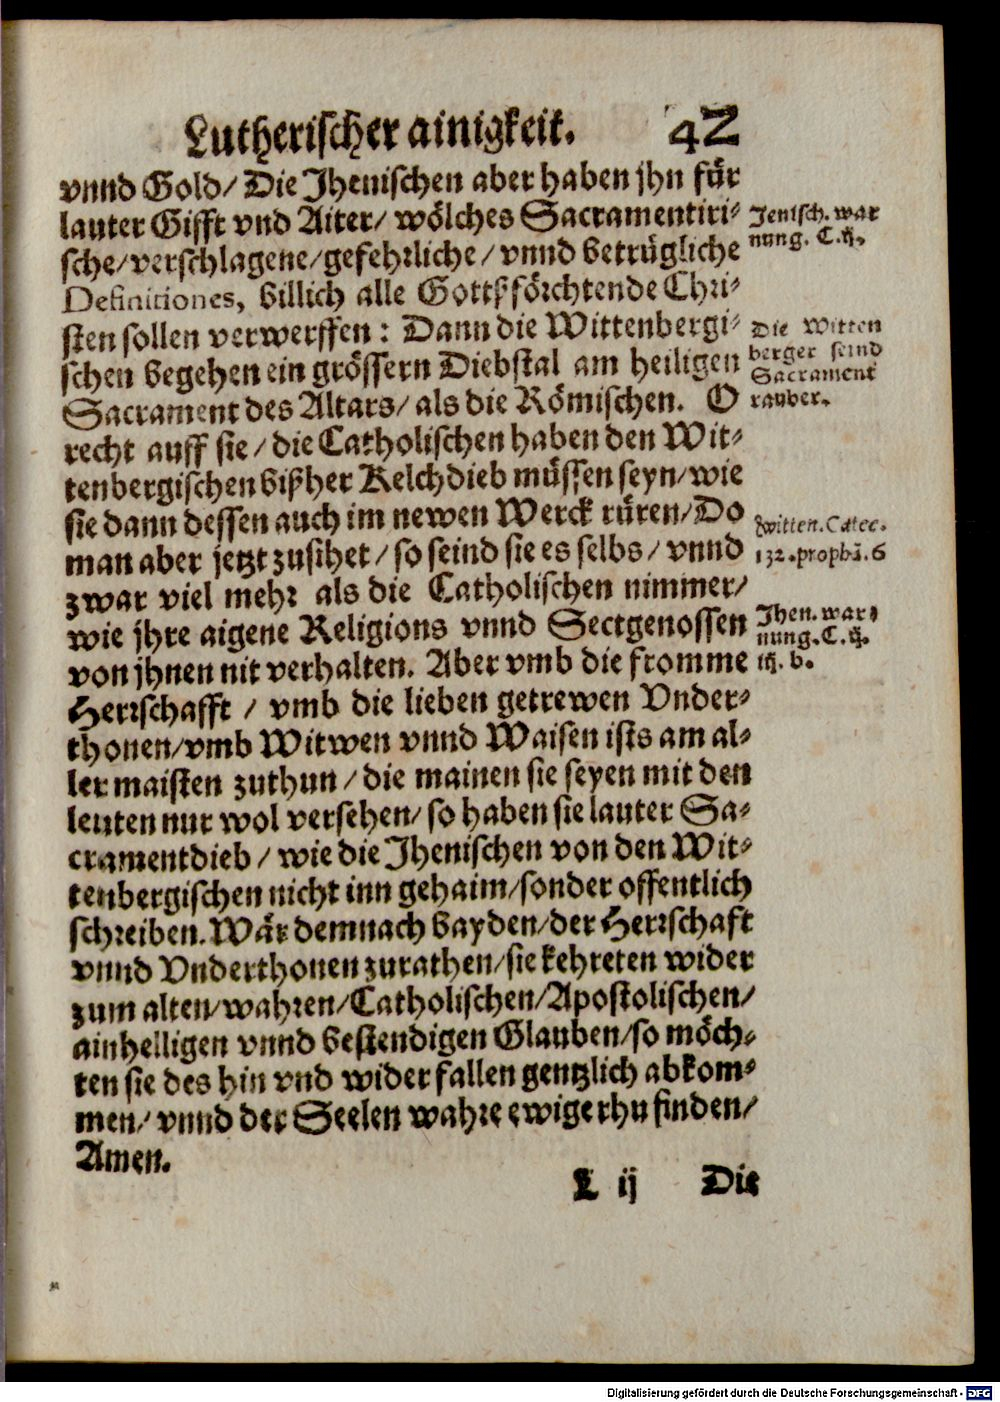 Lutherischer ainigkeit. 42
vnnd Gold/ Die Jhenischen aber haben jhn für
lauter Gifft vnd Aiter/ wölches Sacramentiri-
sche/ verschlagene/ gefehrliche/ vnnd betrügliche
Definitiones, billich alle Gottßförchtende Chri-
sten sollen verwerffen: Dann die Wittenbergi-
schen begehen ein grössern Diebstal am heiligen
Sacrament des Altars/ als die Römischen. O
recht auff sie/ die Catholischen haben den Wit-
tenbergischen bißher Kelchdieb müssen seyn/ wie
sie dann dessen auch im newen Werck rüren/ Do
man aber jetzt zusihet/ so seind sie es selbs/ vnnd
zwar viel mehr als die Catholischen nimmer/
wie jhre aigene Religions vnnd Sectgenossen
von jhnen nit verhalten. Aber vmb die fromme
Herrschafft/ vmb die lieben getrewen Vnder-
thonen/ vmb Witwen vnnd Waisen ists am al-
ler maisten zuthun/ die mainen sie seyen mit den
leuten nur wol versehen/ so haben sie lauter Sa-
cramentdieb/ wie die Jhenischen von den Wit-
tenbergischen nicht inn gehaim/ sonder offentlich
schreiben. Wär demnach bayden/ der Herrschaft
vnnd Vnderthonen zurathen/ sie kehreten wider
zum alten/ wahren/ Catholischen/ Apostolischen/
ainhelligen vnnd bestendigen Glauben/ so möch-
ten sie des hin vnd wider fallen gentzlich abkom-
men/ vnnd der Seelen wahre ewige rhu finden/
Amen.
L ij Die
Jenisch. war
nung. C. ij.
Die Witten
berger seind
Sacrament
rauber.
Witten. Catec.
132. prophā. 6
Jhen. war-
nung. C. ij.
iij. b.
Digitalisierung gefördert durch die Deutsche Forschungsgemeinschaft - DFG